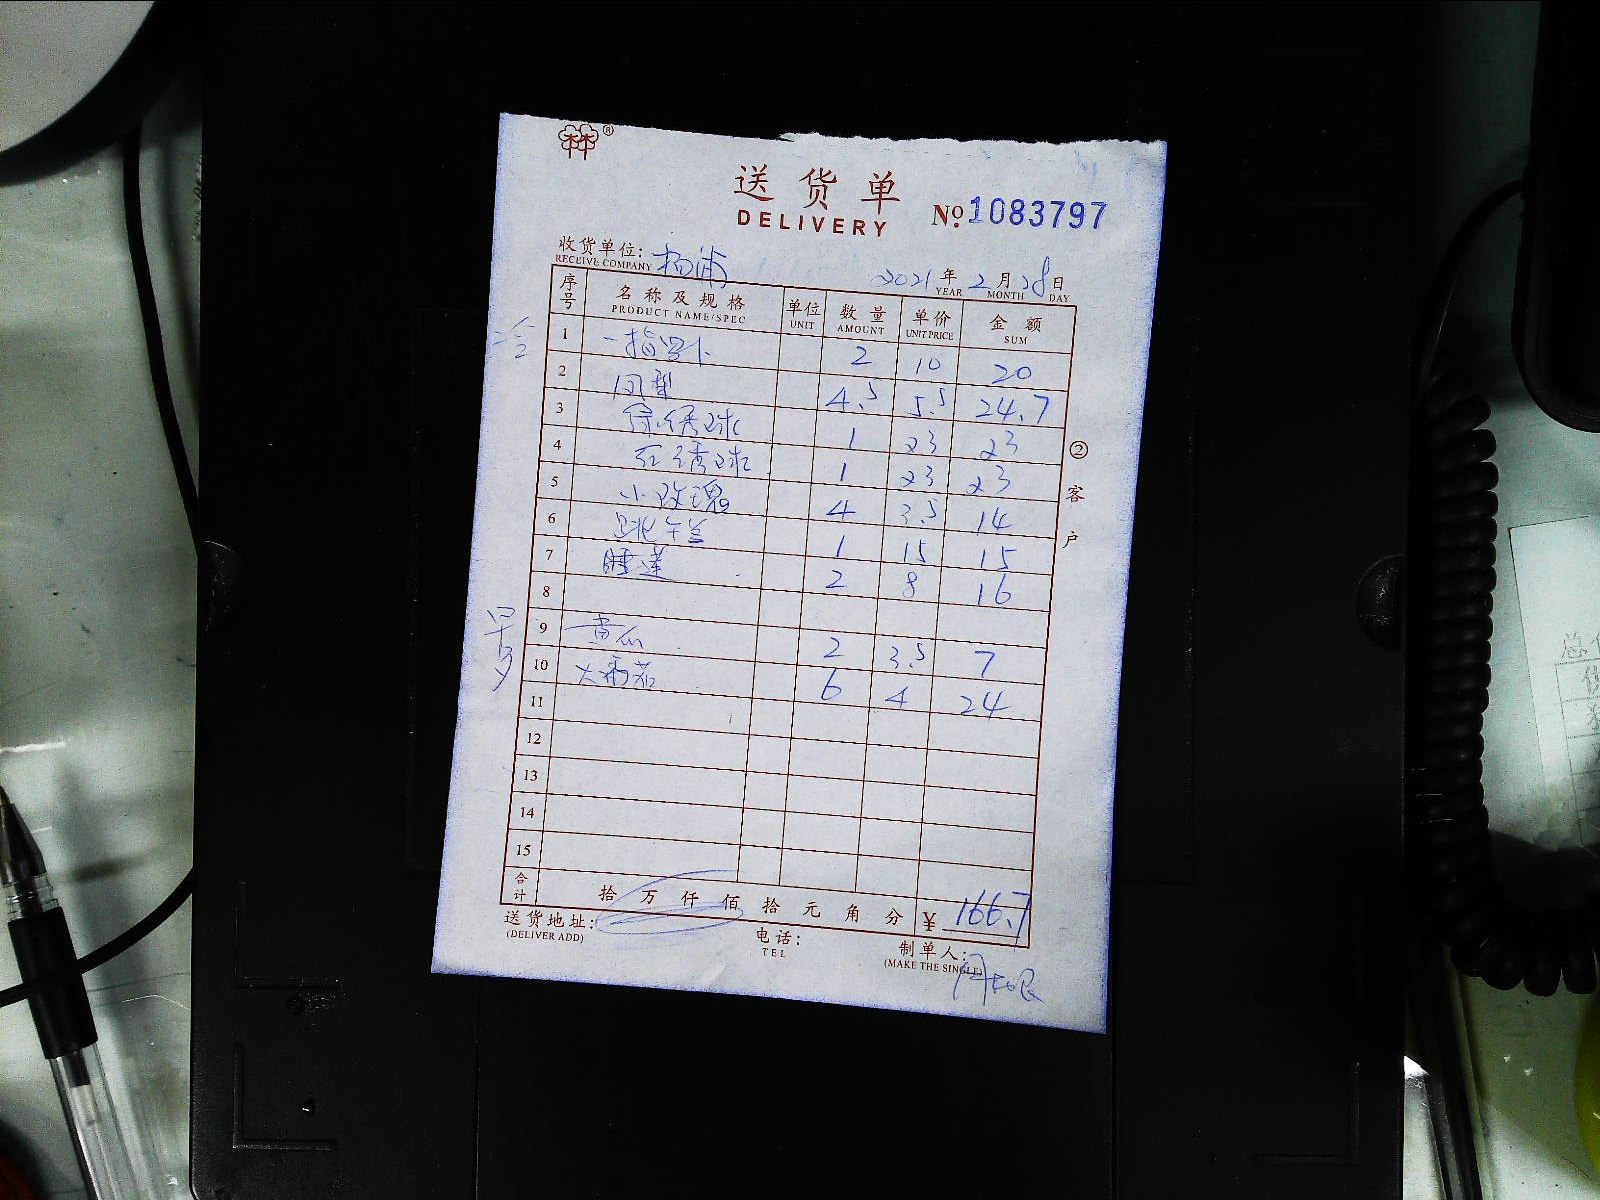 送货单
DELIVERY
№ 1083797
收货单位: 杨浦 2021年2月28日
RECEIVE COMPANY YEAR MONTH DAY
序号 名称及规格 单位 数量 单价 金额
PRODUCT NAME/SPEC UNIT AMOUNT UNIT PRICE SUM
冷
1 2 10 20
2 4.5 5.5 24.7
3 绣球 1 23 23
4 红绣球 1 23 23
5 小玫瑰 4 3.5 14
6 1 15 15
7 睡莲 2 8 16
8
早
9 黄瓜 2 3.5 7
10 大番茄 6 4 24
11
12
13
14
15
合计 拾万仟佰拾元角分 ¥ 166.7
送货地址: 电话: 制单人:
(DELIVER ADD) TEL (MAKE THE SINGLE)
② 客户